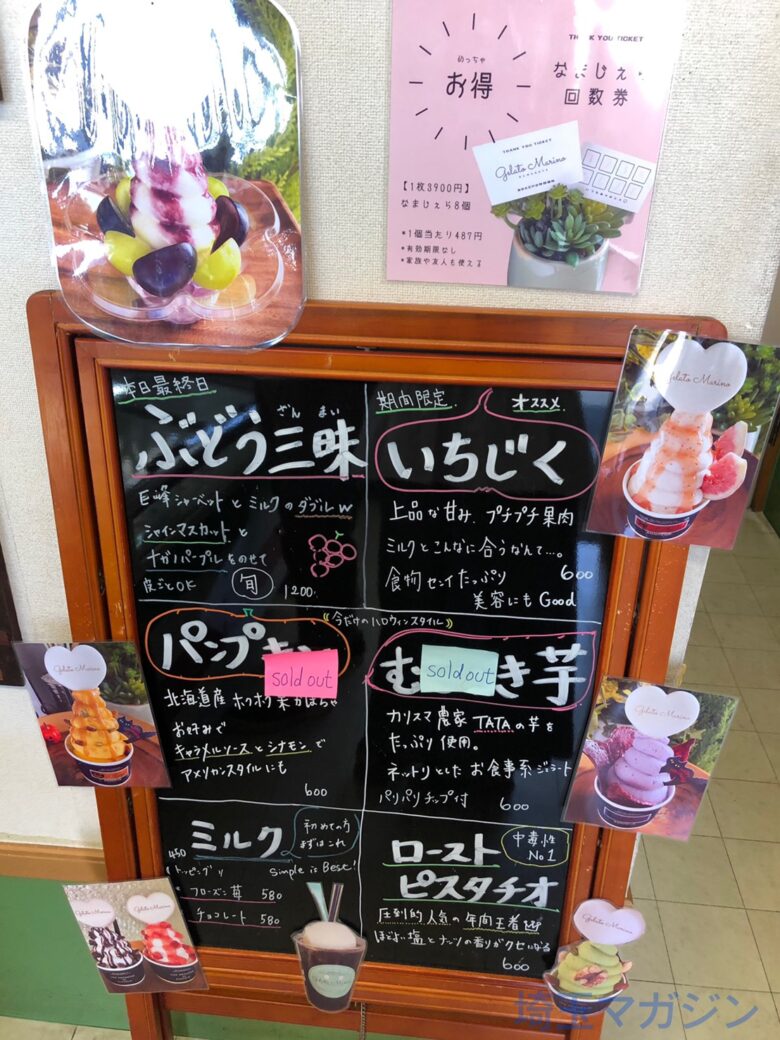 めっちゃ
お得
THANK YOU TICKET
回数券
THANK YOU TICKET
Gelato Marino
【1枚3900円】
なまじぇら8個
*1個当たり487円
*有効期限なし
*家族や友人も使える
本日最終日
ざんまい
ぶどう三昧
巨峰シャーベットとミルクのダブルw
シャインマスカットと
ナガノパープルをのせて
皮ごとOK
旬
1200
期間限定
オススメ
いちじく
上品な甘み、プチプチ果肉
ミルクとこんなに合うなんて…。
食物センイたっぷり
600
美容にもGood
《今だけハロウィンスタイル》
パンプ
sold out
北海道産 ホクホク
お好みで
キャラメルソースとシナモンで
アメリカンスタイルにも
600
む
sold out
き芋
カリスマ農家 TATAの芋を
たっぷり使用。
ネットリとした お食事系ジェラート
パリパリチップ付
600
ミルク
初めての方
まずはこれ
450
Simple is Best!
トッピング
フローズン苺 580
チョコレート 580
ロースト
ピスタチオ
中毒性
No1
圧倒的人気の年間王者
ほどよい塩とナッツの香りがクセになる
600
Gelato Marino
Gelato Marino
Gelato Marino
Gelato Marino
Gelato Marino
Gelato Marino
埼玉マガジン